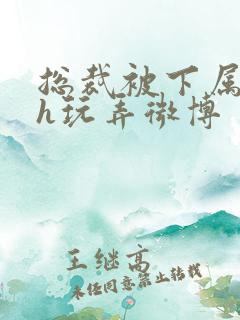 总裁被下属
h玩弄微博
王继高
未经同意禁止转载